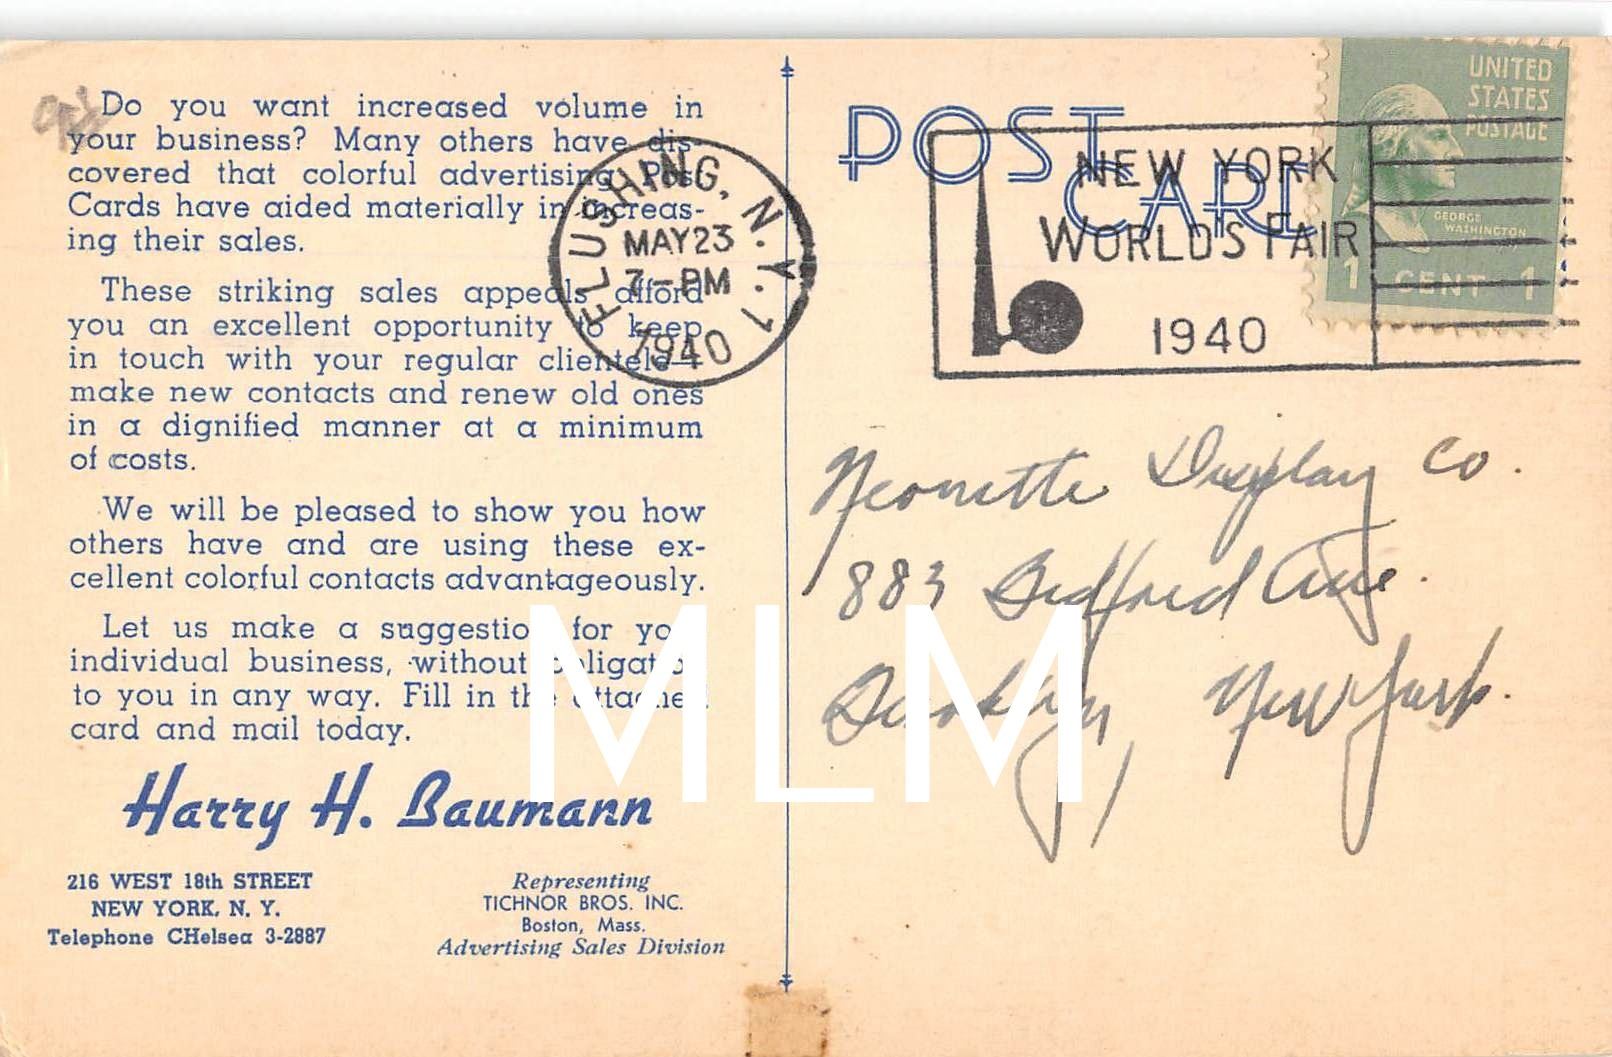 Do you want increased volume in
your business? Many others have dis-
covered that colorful advertising Post
Cards have aided materially in increas-
ing their sales.
These striking sales appeals afford
you an excellent opportunity to keep
in touch with your regular clientele—
make new contacts and renew old ones
in a dignified manner at a minimum
of costs.
We will be pleased to show you how
others have and are using these ex-
cellent colorful contacts advantageously.
Let us make a suggestion for your
individual business, without obligation
to you in any way. Fill in the attached
card and mail today.
Harry H. Baumann
216 WEST 18th STREET
NEW YORK, N. Y.
Telephone CHelsea 3-2887
Representing
TICHNOR BROS. INC.
Boston, Mass.
Advertising Sales Division
POST CARD
FLUSHING, N.Y. 1
MAY 23
7-PM
1940
NEW YORK
WORLD'S FAIR
1940
UNITED
STATES
POSTAGE
GEORGE
WASHINGTON
1 CENT 1
Neonette Display Co.
883 Bedford Ave.
Brooklyn, New York.
MLM